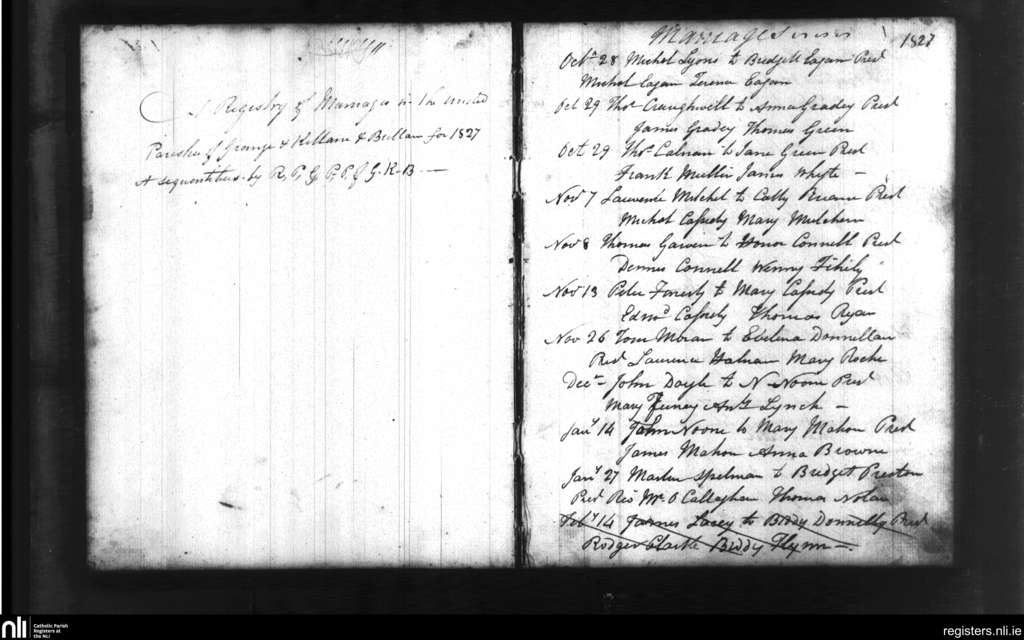 A Registry of Marriages in the united
Parishes of Grange & Killaan & Bullaun for 1827
et sequentibus by R. P. G P.P. of G. K. B —
Marriages
1827
Octr 28 Michel Lyons to Bridgett Eagan Prst
Michel Eagan Teresa Eagan
Oct 29 Thos Craughwell to Anna Gradey Prst
James Gradey Thomas Green
Oct 29 Thos Calnan to Jane Green Prst
Frank Mullin James Whyte —
Novr 7 Lawrence Mitchel to Catty Ruane Prst
Michel Cassedy Mary
Novr 8 Thomas to Honor Connell Prst
Dennis Connell Winny
Novr 13 Peter to Mary Cassedy Prst
Edmd Cassedy Thomas Ryan
Nov 26 Tom Moran to Ebelina Donnellan
Prst Laurence Mary Roche
Decr — John Doyle to N Noone Prst
Mary Feeney Anty Lynch —
Jany 14 John Noone to Mary Mahon Prst
James Mahon Anna Browne
Jany 27 Martin Spelman to Bridget Preston
Prst Revd Mr O Callaghan Thomas Nolan
Feby 14 James Lacey to Biddy Donnelly Prst
Rodger Clarke Biddy Flynn —
nli Catholic Parish
Registers at
the NLI
registers.nli.ie